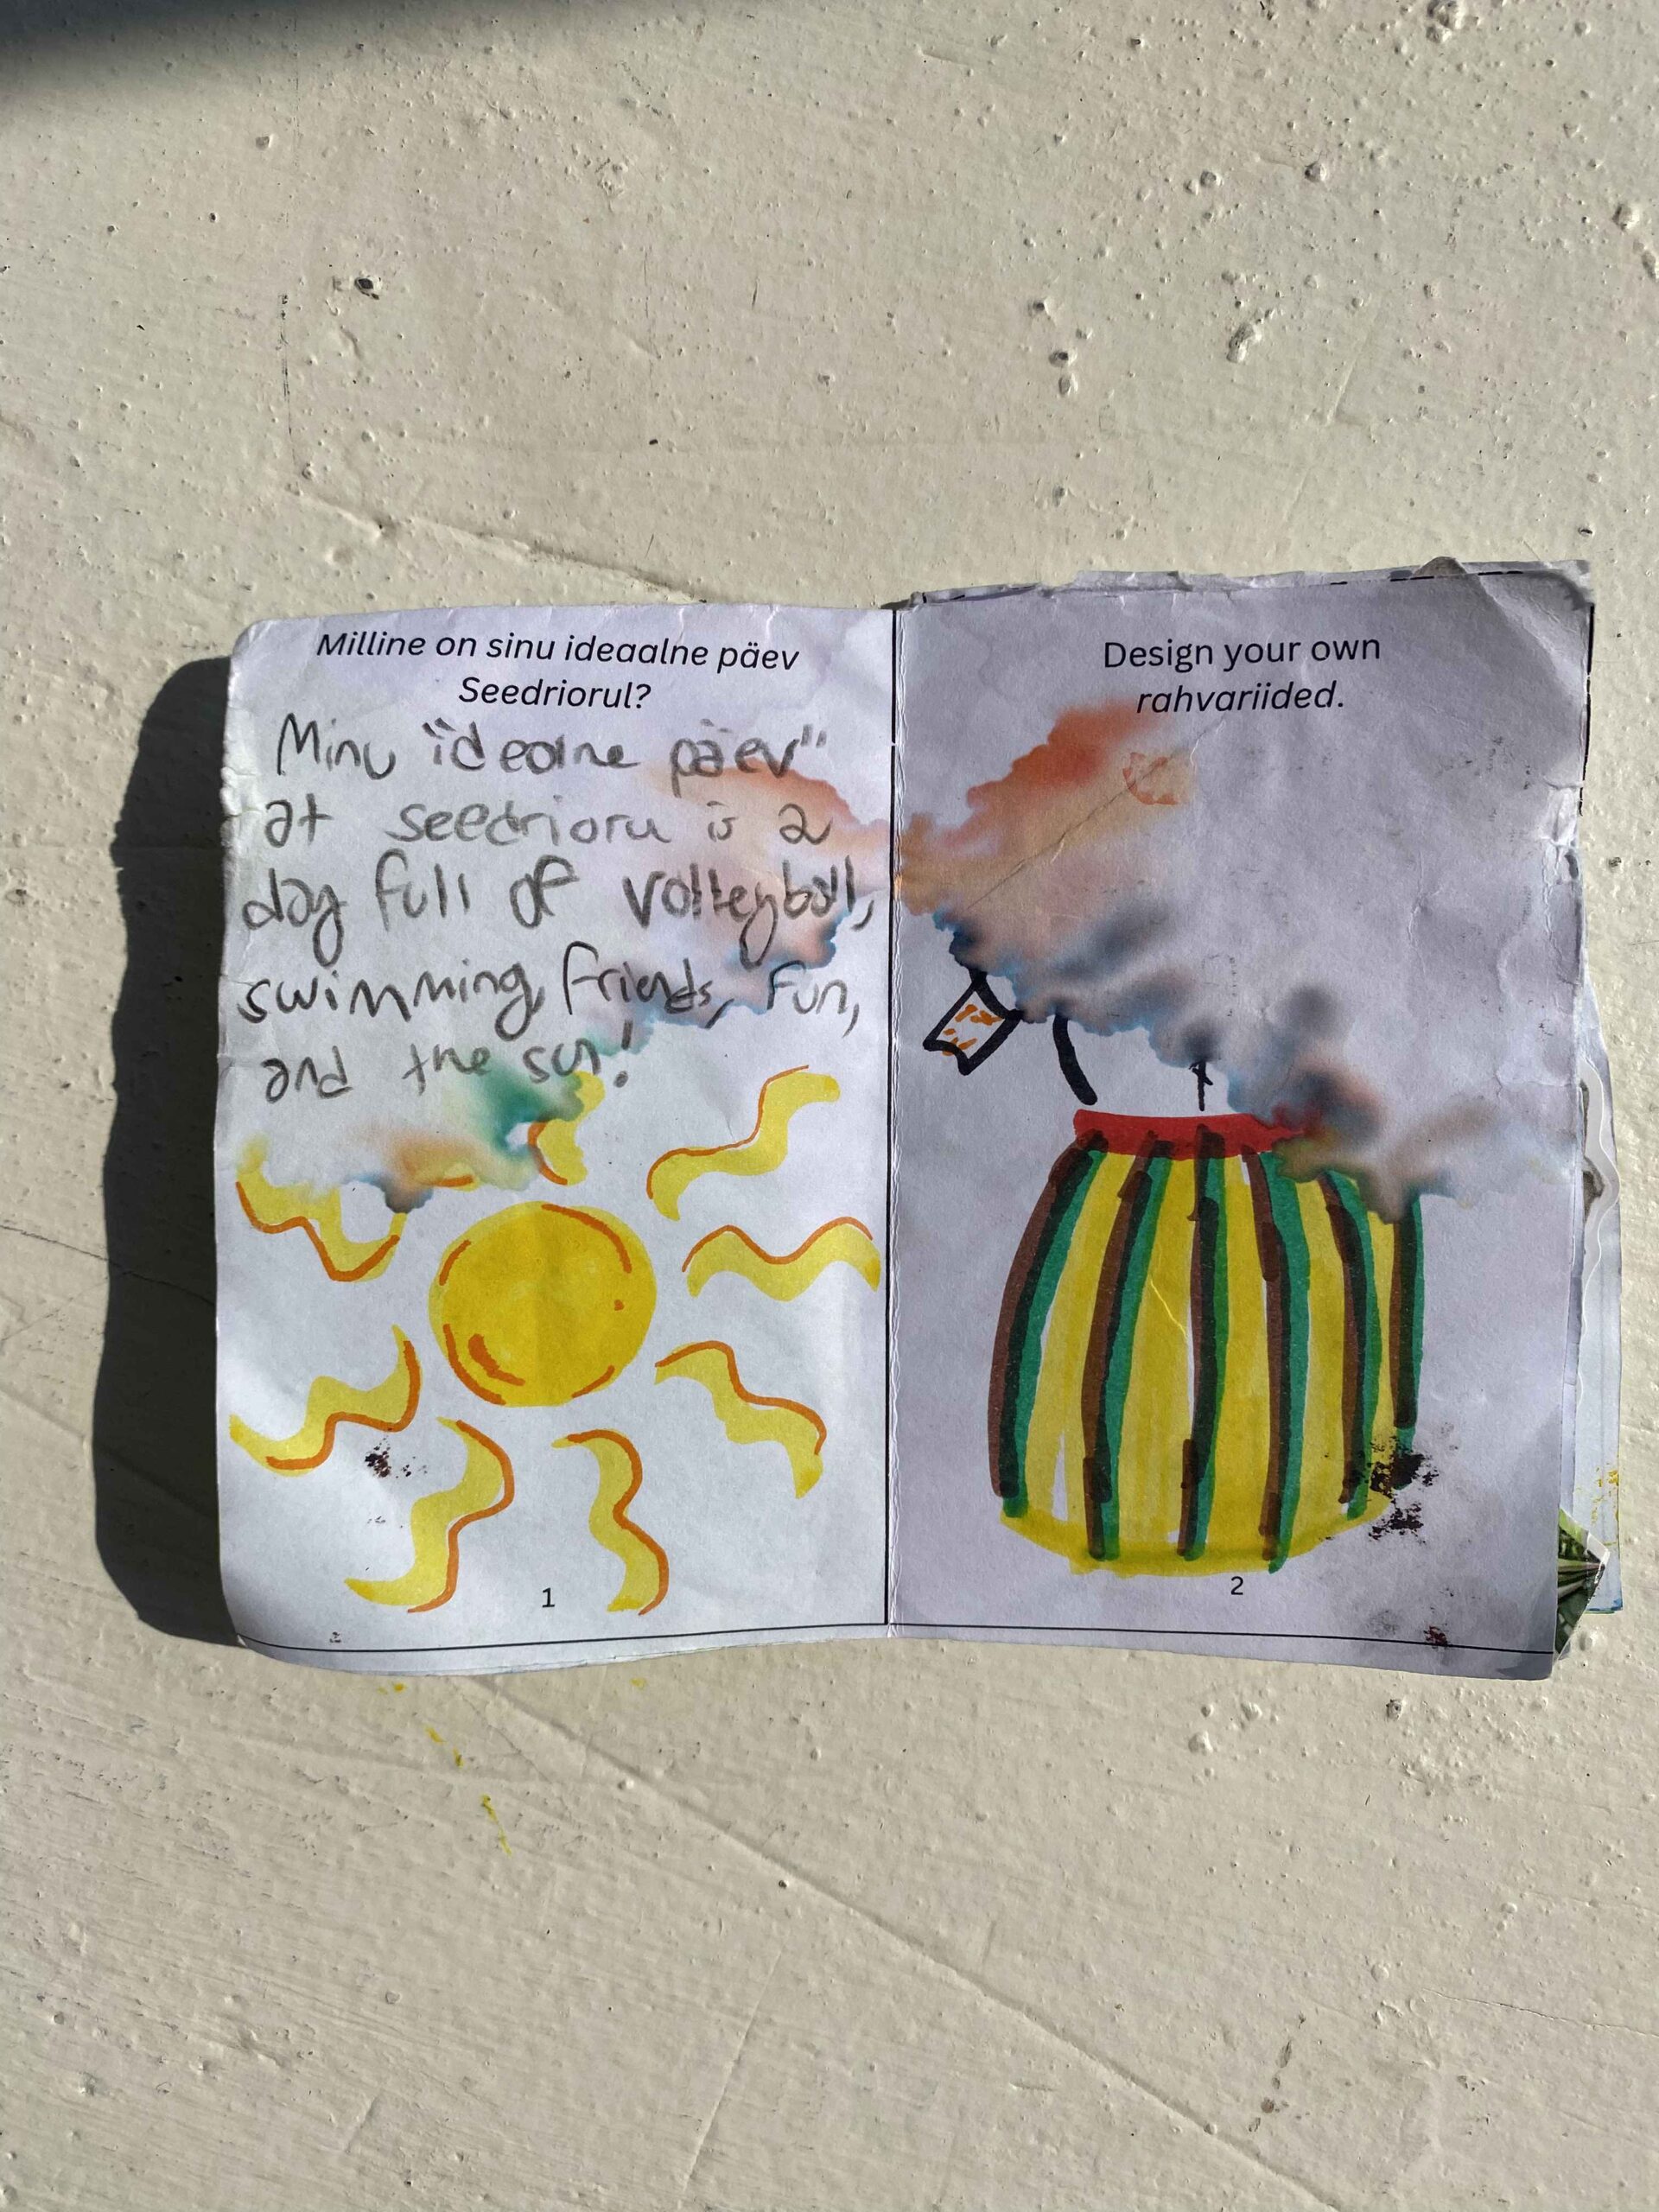 Milline on sinu ideaalne päev
Seedriorul?
Minu "idealne päev"
at seedrioru is a
day full of volleyball,
swimming, friends, fun,
and the sun!
1
Design your own
rahvariided.
2